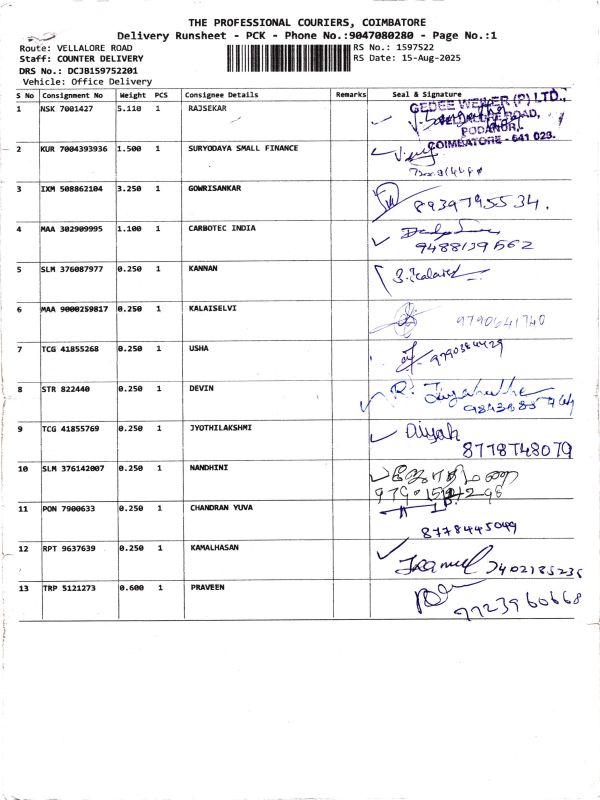 THE PROFESSIONAL COURIERS, COIMBATORE
Delivery Runsheet - PCK - Phone No.:9047080280 - Page No.:1
Route: VELLALORE ROAD
RS No.: 1597522
Staff: COUNTER DELIVERY
RS Date: 15-Aug-2025
DRS No.: DCJB159752201
Vehicle: Office Delivery
S No Consignment No Weight PCS Consignee Details Remarks Seal & Signature
1 NSK 7001427 5.110 1 RAJSEKAR
GEDEE WEILER (P) LTD.,
VELLALORE ROAD,
PODANUR,
COIMBATORE - 641 023.
2 KUR 7004393936 1.500 1 SURYODAYA SMALL FINANCE
3 IXM 508862104 3.250 1 GOWRISANKAR
8939795534.
4 MAA 302909995 1.100 1 CARBOTEC INDIA
9488139562
5 SLM 376087977 0.250 1 KANNAN
6 MAA 9000259817 0.250 1 KALAISELVI 9790641740
7 TCG 41855268 0.250 1 USHA 9790384429
8 STR 822440 0.250 1 DEVIN
9 TCG 41855769 0.250 1 JYOTHILAKSHMI
8778748079
10 SLM 376142007 0.250 1 NANDHINI
11 PON 7900633 0.250 1 CHANDRAN YUVA
8778445049
12 RPT 9637639 0.250 1 KAMALHASAN
7402185236
13 TRP 5121273 0.600 1 PRAVEEN
9723960668